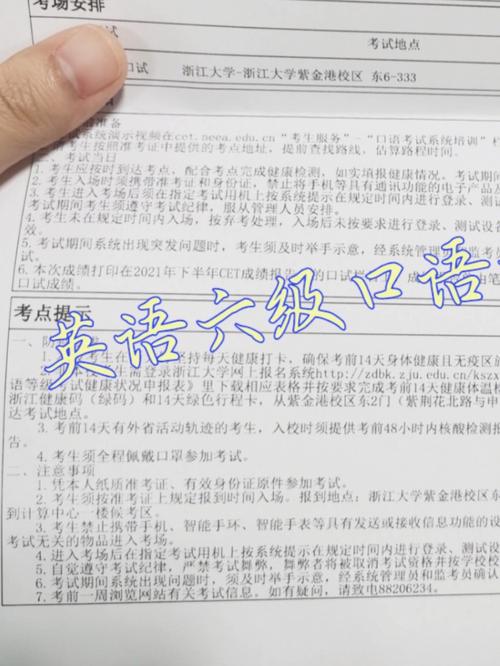 考场安排
考试地点
口试 浙江大学-浙江大学紫金港校区 东6-333
准备
试系统演示视频在cet.neea.edu.cn“考生服务”-“口语考试系统培训”栏
考生按照准考证中提供的考点地址，提前查找路线，估算路程时间。
二、考试当日
1.考生应按时到达考点，配合考点完成健康检测，如实填报健康情况。考试期间
2.考生入场时须携带准考证和身份证，禁止将手机等具有通讯功能的电子产品
3.考生入场后须在指定考试用机上按系统提示在规定时间内进行登录、测试
考试期间考生须遵守考试纪律，服从管理人员安排。
4.考生未在规定时间内入场，按弃考处理，入场后未按要求进行登录、测试设备
5.考试期间系统出现突发问题时，考生须及时举手示意，经系统管理员
6.本次成绩打印在2021年下半年CET成绩报告
口试成绩。
英语六级口语
考点提示
一、防
坚持每天健康打卡，确保考前14天身体健康且无疫区
需登录浙江大学网上报名系统http://zdbk.zju.edu.cn/kszx
语等级考试健康状况申报表》里下载相应表格并按要求完成考前14天健康体温检
浙江健康码（绿码）和14天绿色行程卡，从紫金港校区东2门（紫荆花北路与申
达考试地点。
3.考前14天有外省活动轨迹的考生，入校时须提供考前48小时内核酸检测报
告。
4.考生须全程佩戴口罩参加考试。
二、注意事项
1.凭本人纸质准考证、有效身份证原件参加考试。
2.考生须按准考证上规定报到时间入场。报到地点：浙江大学紫金港校区东
到计算中心一楼候考区。
3.考生禁止携带手机、智能手环、智能手表等具有发送或接收信息功能的设
考试无关的物品进入考场。
4.进入考场后在指定考试用机上按系统提示在规定时间内进行登录、测试设
5.自觉遵守考试纪律，严禁考试舞弊，舞弊者将被取消考试资格并按学校
6.考试期间系统出现问题时，须及时举手示意，经系统管理员和监考员确认
7.考前一周浏览网站有关考试信息。如有疑问，请致电88206234。